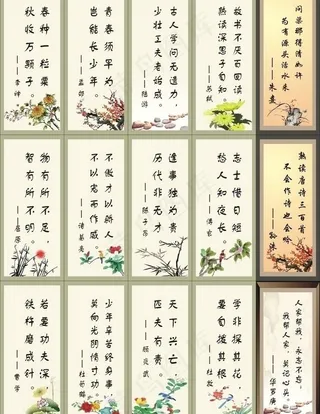 春种一粒粟
秋收万颗子
——李绅
青春须早为
岂能长少年
——孟郊
古人学问无遗力，
少壮工夫老始成。
——陆游
故书不厌百回读
熟读深思子自知
——苏轼
问渠那得清如许
为有源头活水来
——朱熹
物有所不足，
智有所不明。
——屈原
不傲才以骄人
不以宠而作威
——诸葛亮
逢事独为贵
历代非无才
——陈子昂
志士惜日短
愁人知夜长
——傅玄
熟读唐诗三百首
不会作诗也会吟
——孙洙
若要功夫深
铁杵磨成针
少年辛苦终身事
莫向光阴惰寸功
——杜荀鹤
天下兴亡
匹夫有责
——顾炎武
学非探其花，
要自拨其根。
——杜牧
人家帮我，永志不忘；
我帮人家，莫记心头
——华罗庚